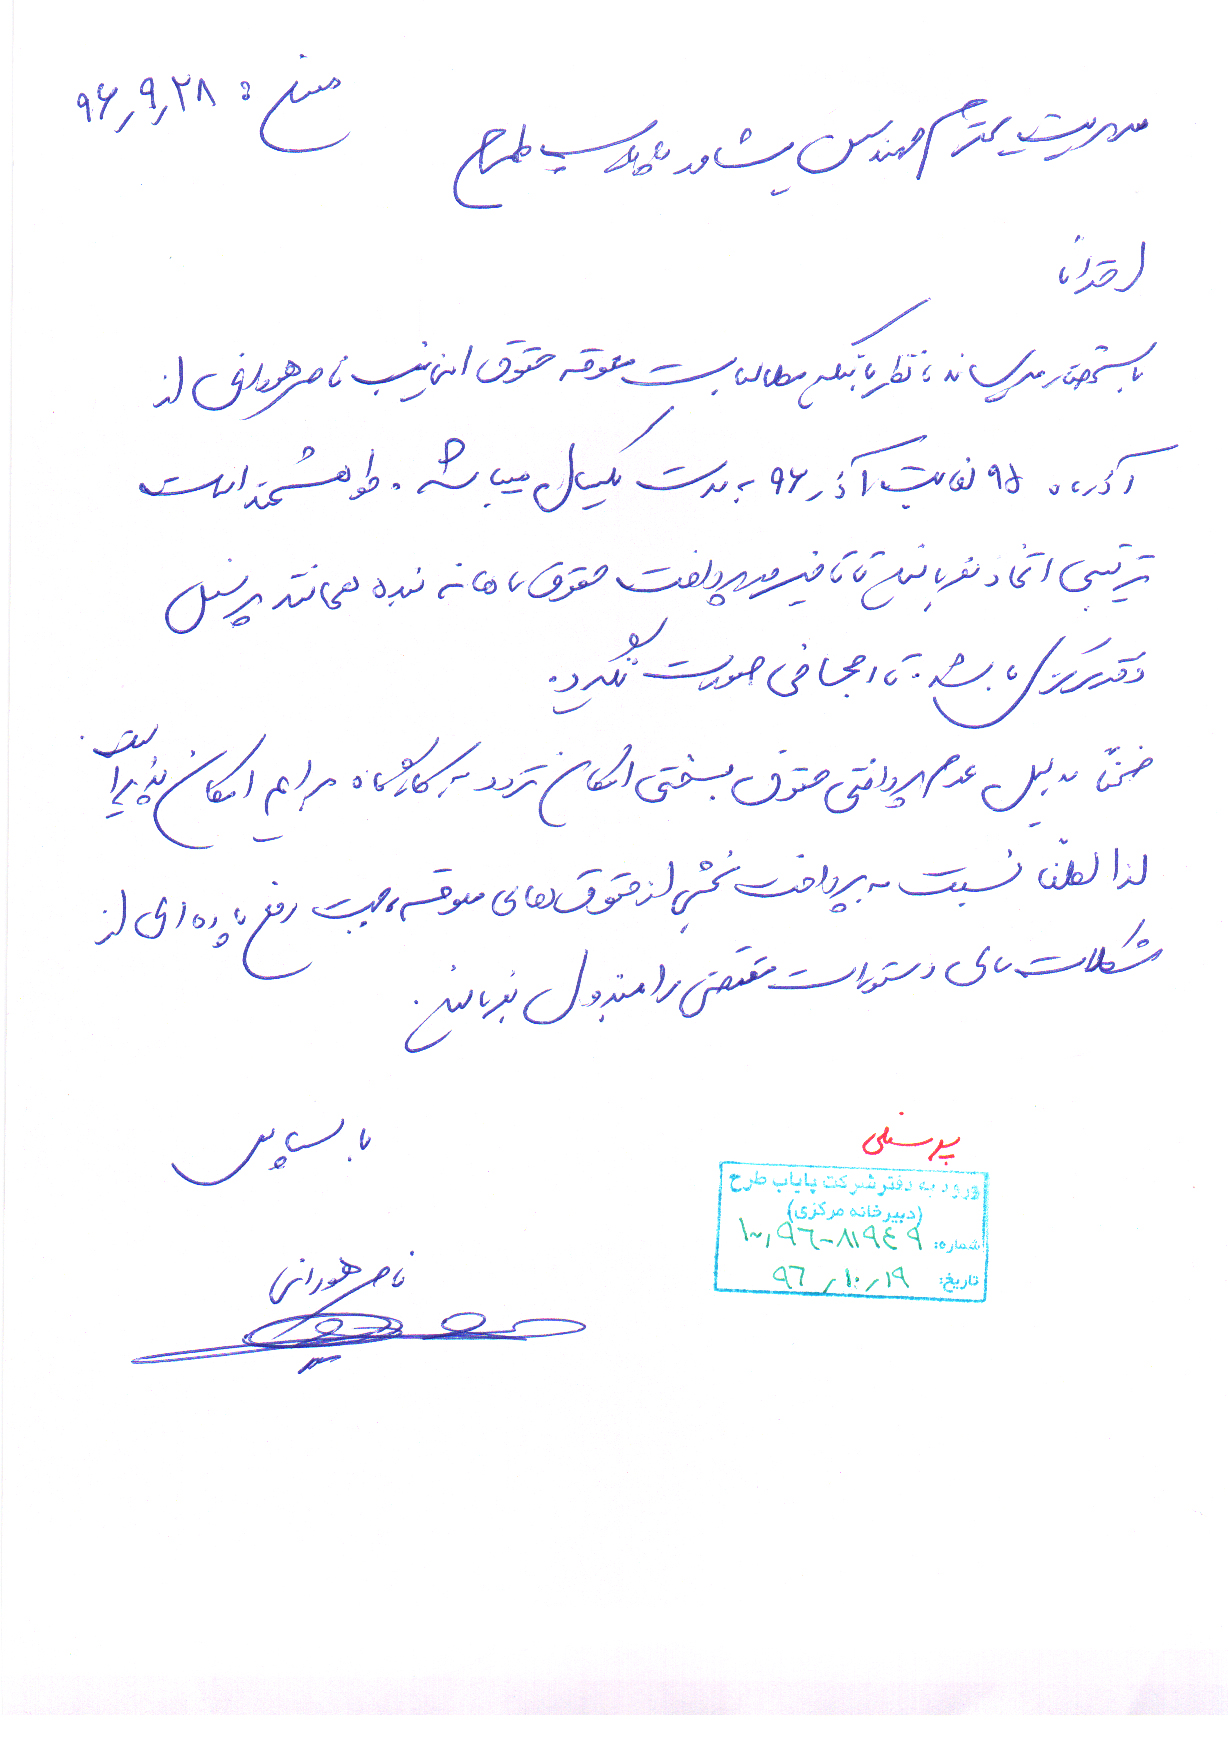 مورخ : ۹۶٫۹٫۲۸
مدیریت محترم مهندسین مشاور پایاب طرح
احتراماً
باستحضار میرساند با نظر باینکه مطالبات معوقه حقوق اینجانب ناصر هورانی از
آذرماه ۹۵ لغایت آذر ۹۶ به مدت یکسال میباشد . خواهشمند است
ترتیبی اتخاذ بفرمائید تا تاخیر در پرداخت حقوق ماهانه بنده همانند پرسنل
دفتر مرکزی باشد . تا اجحافی صورت نگیرد .
ضمناً بدلیل عدم پرداختی حقوق بسختی امکان تردد به کارگاه برایم امکان پذیر است .
لذا لطفاً نسبت به پرداخت بخشی از حقوق های معوقه جهت رفع پاره ای از
مشکلات مالی دستورات مقتضی را مبذول بفرمائید .
با سپاس
ناصر هورانی
پرسنلی
ورود به دفتر شرکت پایاب طرح
(دبیرخانه مرکزی)
شماره: ۱۰٫۹۶-۸۱۹۴۹
تاریخ: ۹۶٫۱۰٫۱۹